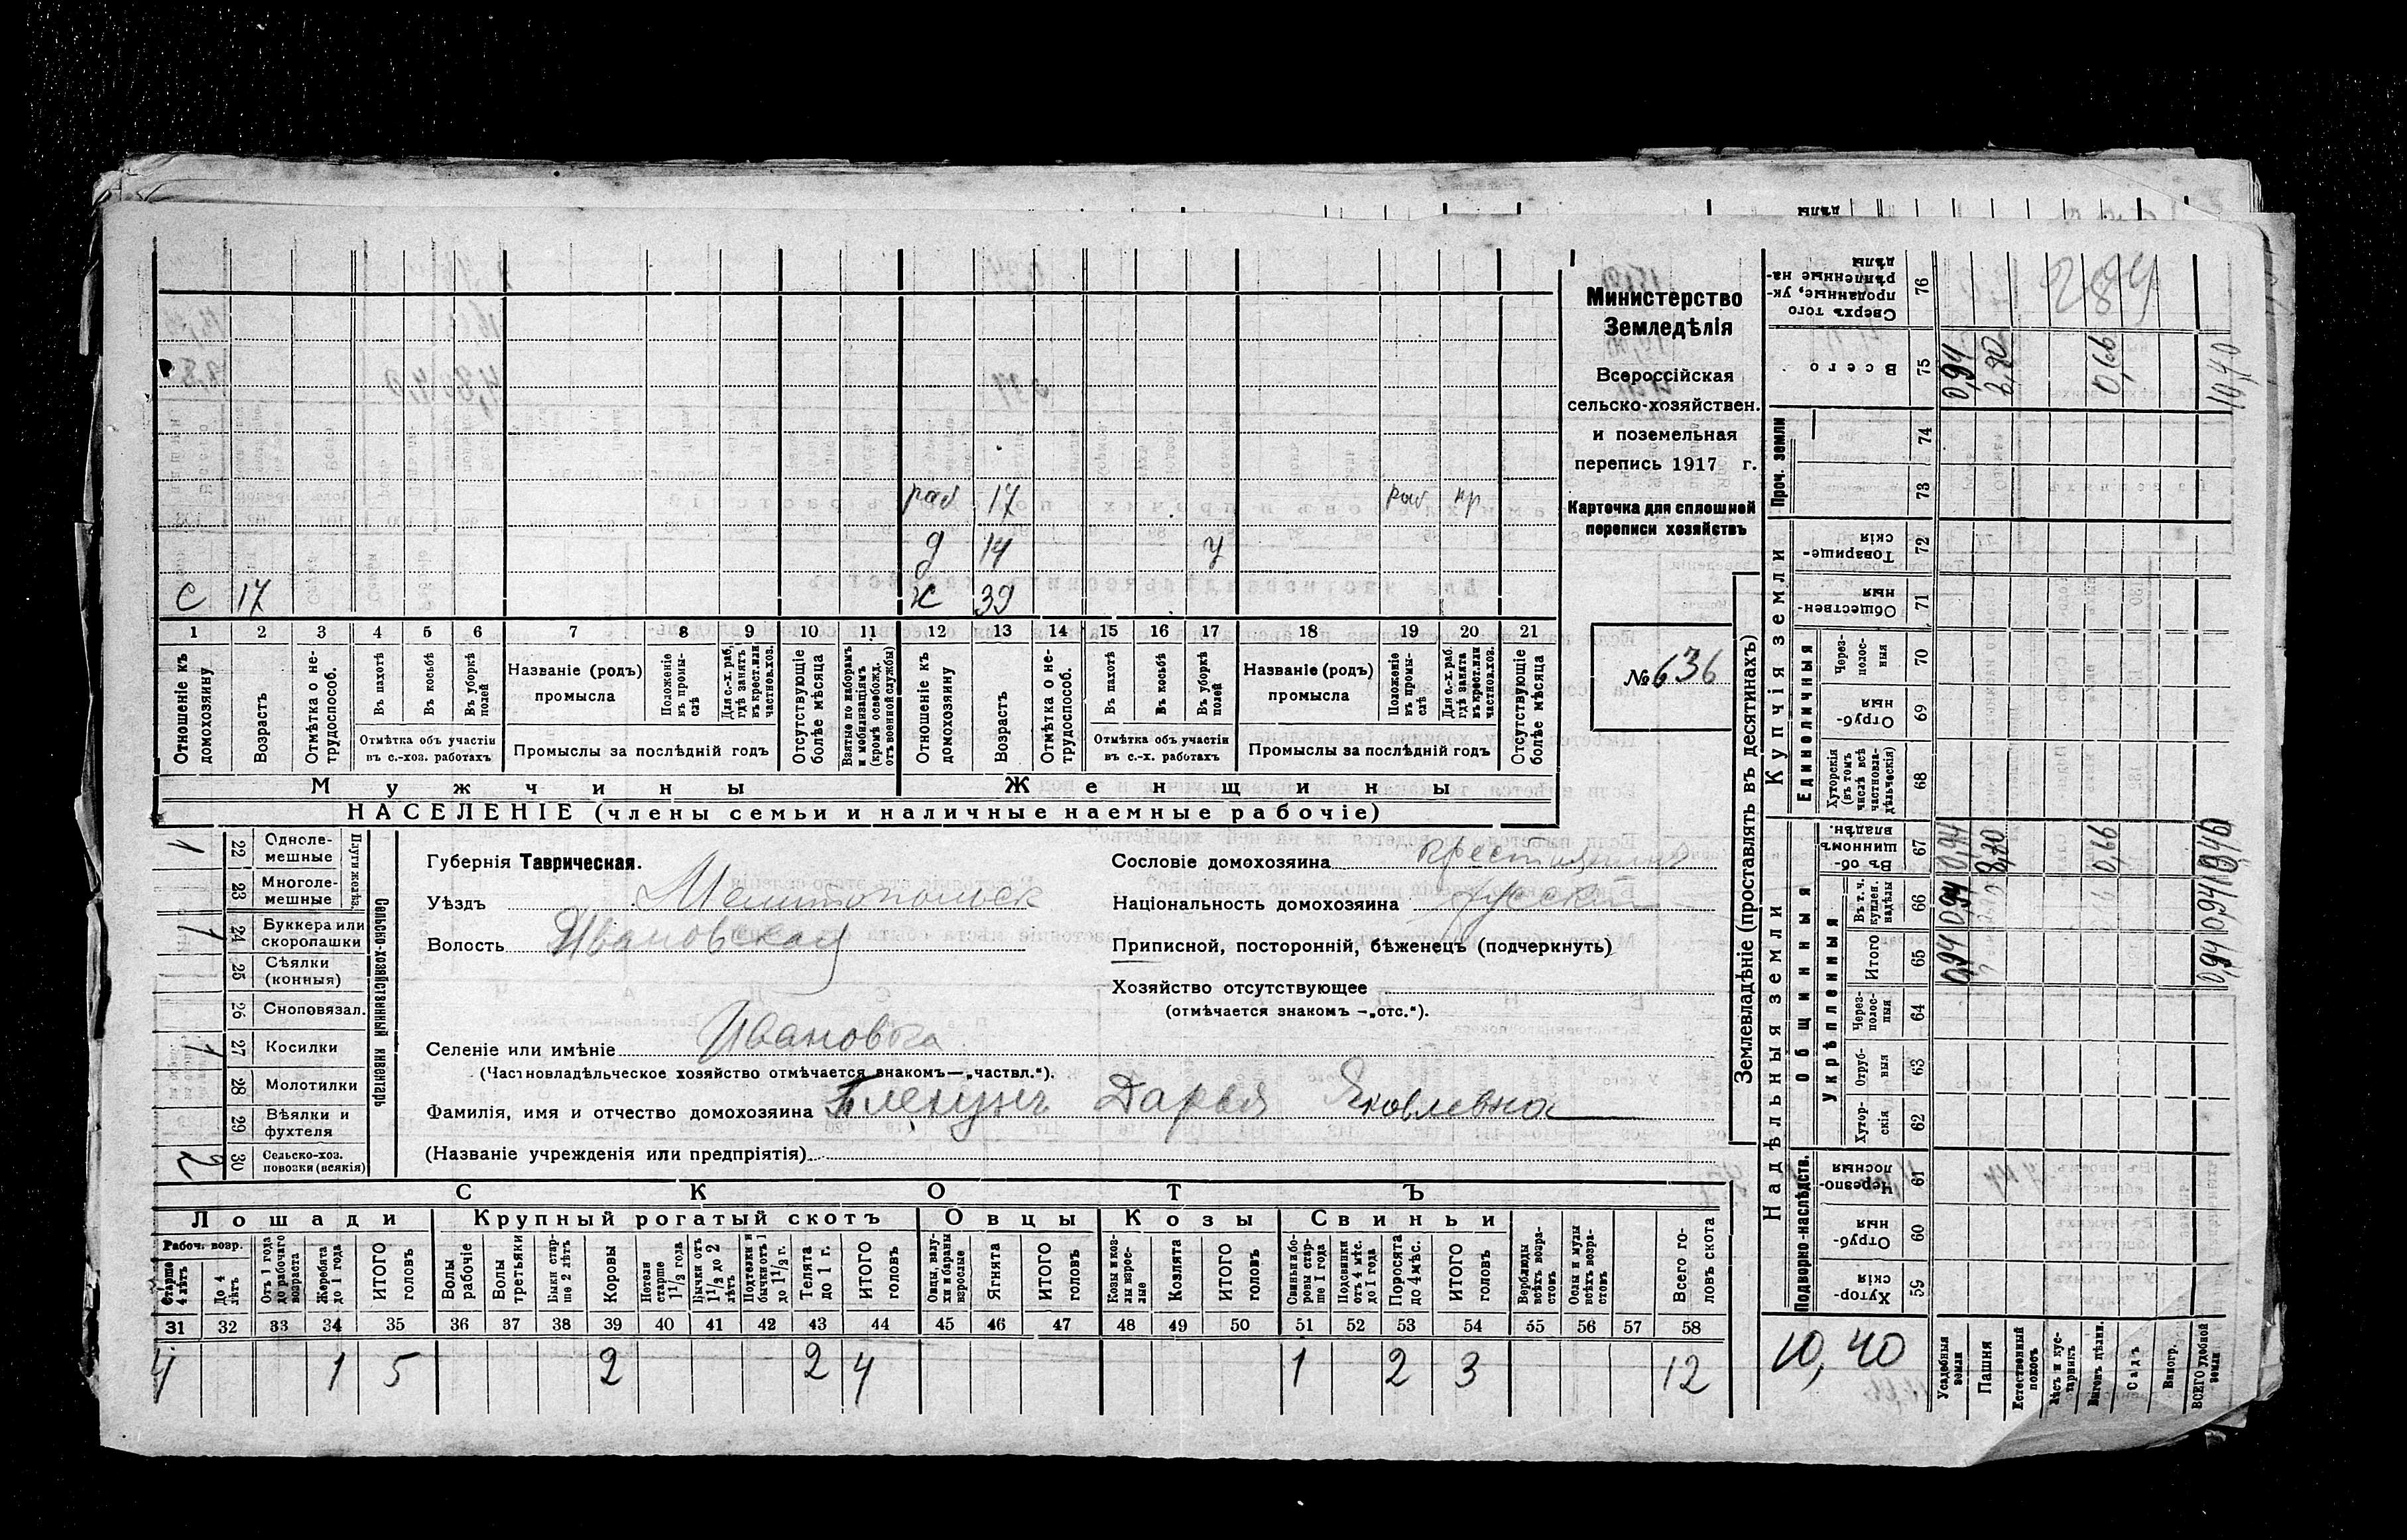 Министерство
Земледѣлія
Всероссійская
сельско-хозяйствен.
и поземельная
перепись 1917 г.
Карточка для сплошной
переписи хозяйствъ
№ 636
раб 17 раб кр
д 14 у
с 17 ж 39
1 2 3 4 5 6 7 8 9 10 11 12 13 14 15 16 17 18 19 20 21
Отношеніе къ домохозяину
Возрастъ
Отмѣтка о не-трудоспособ.
Въ пахотѣ
Въ косьбѣ
Въ уборкѣ полей
Отмѣтка объ участіи
въ с.-хоз. работахъ
Названіе (родъ)
промысла
Положеніе въ промы-слѣ
Для с.-х. раб. гдѣ занятъ въ крест. или частнов. хоз.
Промыслы за послѣдній годъ
Отсутствующіе болѣе мѣсяца
Взятые по наборамъ и мобилизаціямъ (кромѣ освобожд. отъ военной службы)
Отношеніе къ домохозяину
Возрастъ
Отмѣтка о не-трудоспособ.
Въ пахотѣ
Въ косьбѣ
Въ уборкѣ полей
Отмѣтка объ участіи
въ с.-х. работахъ
Названіе (родъ)
промысла
Положеніе въ промы-слѣ
Для с.-х. раб. гдѣ занята въ крест. или частнов. хоз.
Промыслы за послѣдній годъ
Отсутствующіе болѣе мѣсяца
Мужчины Женщины
НАСЕЛЕНІЕ (члены семьи и наличные наемные рабочіе)
Сельско-хозяйственный инвентарь
Плуги желѣз.
1 22 Одноле-мешные
23 Многоле-мешные
1 24 Буккера или скоропашки
25 Сѣялки (конныя)
26 Сноповязал.
1 27 Косилки
28 Молотилки
29 Вѣялки и фухтеля
2 30 Сельско-хоз. повозки (всякія)
Губернія Таврическая.
Уѣздъ Мелитопольск
Волость Ивановская
Селеніе или имѣніе Ивановка
(Частновладѣльческое хозяйство отмѣчается знакомъ—„частвл.“).
Фамилія, имя и отчество домохозяина Дарья Яковлевна
(Названіе учрежденія или предпріятія)
Сословіе домохозяина
Національность домохозяина русскій
Приписной, посторонній, бѣженецъ (подчеркнуть)
Хозяйство отсутствующее
(отмѣчается знакомъ —„отс.“).
СКОТЪ
Лошади Крупный рогатый скотъ Овцы Козы Свиньи
Рабоч. возр.
Старше 4 лѣтъ
До 4 лѣтъ
Отъ 1 года до рабочаго возраста
Жеребята до 1 года
ИТОГО головъ
Волы рабочіе
Волы третьяки
Быки стар-ше 2 лѣтъ
Коровы
Нетели старше 1 1/2 года
Бычки отъ 1 1/2 до 2 лѣтъ
Подтелки и бычки отъ 1 до 1 1/2 г.
Телята до 1 г.
ИТОГО головъ
Овцы, валу-хи и бараны взрослые
Ягнята
ИТОГО головъ
Козы и коз-лы взрос-лые
Козлята
ИТОГО головъ
Свиньи и бо-ровы стар-ше 1 года
Подсвинки отъ 4 мѣс. до 1 года
Поросята до 4 мѣс.
ИТОГО головъ
Верблюды всѣхъ возра-стовъ
Ослы и мулы всѣхъ возра-стовъ
Всего го-ловъ скота
31 32 33 34 35 36 37 38 39 40 41 42 43 44 45 46 47 48 49 50 51 52 53 54 55 56 57 58
4 1 5 2 2 4 1 2 3 12
10,40
Землевладѣніе (проставлять въ десятинахъ)
Надѣльныя земли
Купчія земли
Проч. земли
Подворно-наслѣдств.
Общинныя
Укрѣпленныя
Единоличныя
Хутор-скія 59
Отруб-ныя 60
Черезпо-лосныя 61
Хутор-скія 62
Отруб-ныя 63
Через-полос-ныя 64
Итого 65
Въ т. ч. куплен. надѣлы 66
Въ об-щинномъ владѣн. 67
Хуторскія (въ томъ числѣ всѣ частновла-дѣльческія) 68
Отруб-ныя 69
Через-полос-ныя 70
Обществен-ныя 71
Товарище-скія 72
73
74
Всего 75
Сверхъ того проданные, ук-рѣпленные на-дѣлы 76
Усадебныя земли
Пашня
Естественный покосъ
Лѣсъ и кус-тарникъ
Выгонъ дѣлим.
Садъ
Виногр.
ВСЕГО удобной земли
0,94 0,94 0,94 0,94
8,80 8,80
0,66 0,66
0,94 0,94 9,46 10,40